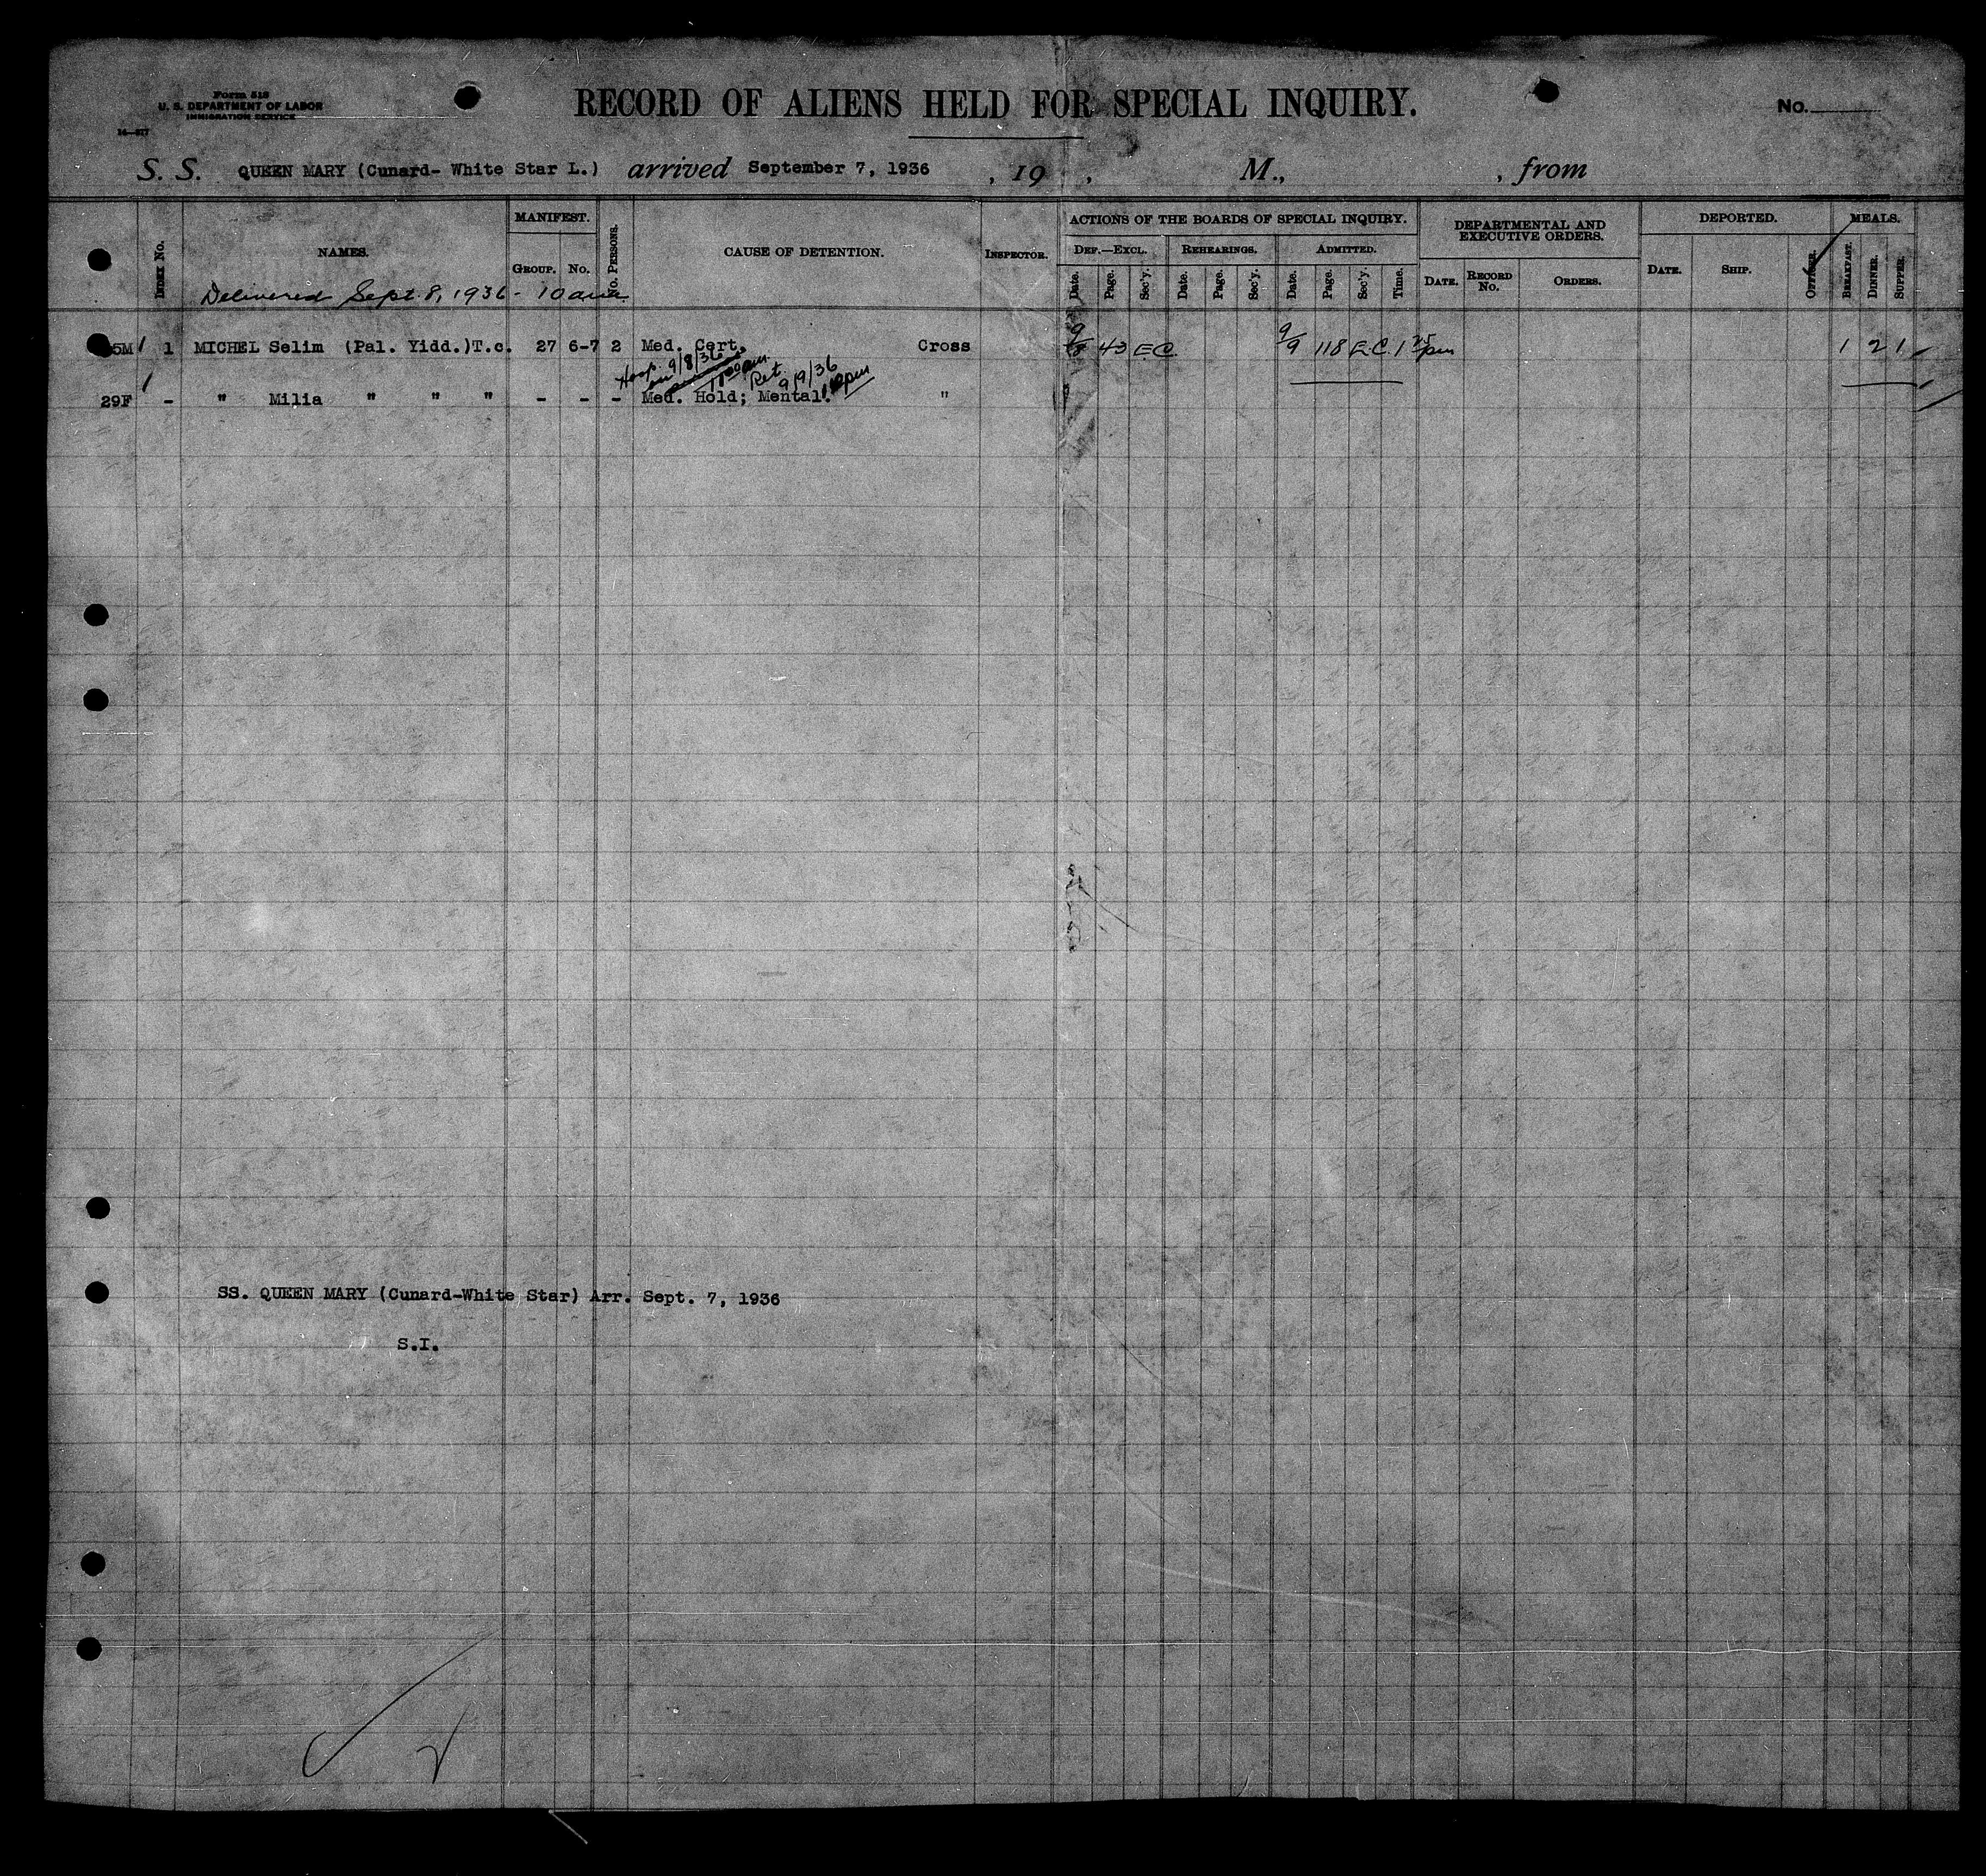 Form 518
U. S. DEPARTMENT OF LABOR
IMMIGRATION SERVICE
RECORD OF ALIENS HELD FOR SPECIAL INQUIRY.
No.
S. S. QUEEN MARY (Cunard- White Star L.) arrived September 7, 1936 , 19 , M., , from
INDEX No. NAMES. MANIFEST. GROUP. No. No. PERSONS. CAUSE OF DETENTION. INSPECTOR. ACTIONS OF THE BOARDS OF SPECIAL INQUIRY. DEF.—EXCL. Date. Page. Sec'y. REHEARINGS. Date. Page. Sec'y. ADMITTED. Date. Page. Sec'y. Time. DEPARTMENTAL AND EXECUTIVE ORDERS. DATE. RECORD No. ORDERS. DEPORTED. DATE. SHIP. OFFICER. MEALS. BREAKFAST. DINNER. SUPPER.
Delivered Sept. 8, 1936 - 10 am
5M 1 MICHEL Selim (Pal. Yidd.)T.c. 27 6-7 2 Med. Cert. Cross 9/8 43 E.C. 9/9 118 E.C. 1 25 pm 1 2 1
Hosp. 9/8/36
Ret. 9/9/36 pm
29F - " Milia " " " - - - Med. Hold; Mental. "
SS. QUEEN MARY (Cunard-White Star) Arr. Sept. 7, 1936
S.I.